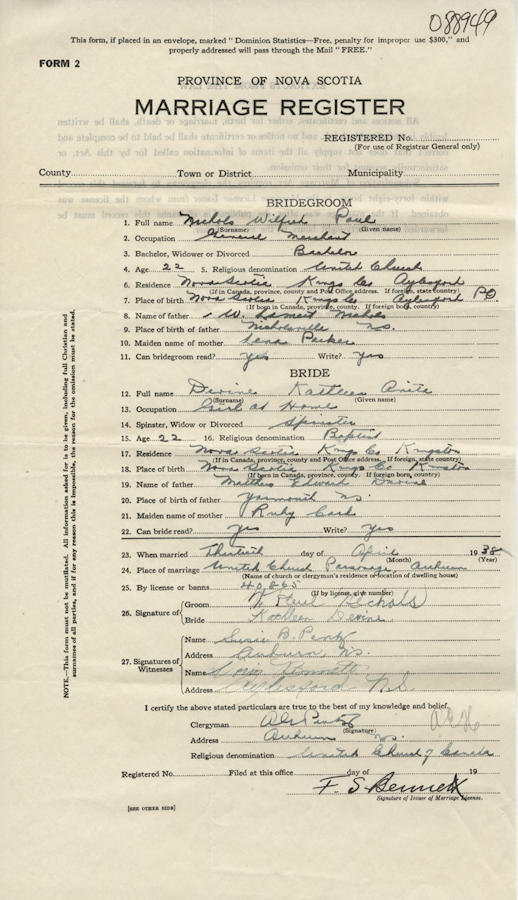 088949
This form, if placed in an envelope, marked "Dominion Statistics—Free, penalty for improper use $300," and
properly addressed will pass through the Mail "FREE."
FORM 2
PROVINCE OF NOVA SCOTIA
MARRIAGE REGISTER
REGISTERED No.
(For use of Registrar General only)
County Town or District Municipality
BRIDEGROOM
1. Full name Nichols Wilfred Paul
(Surname) (Given name)
2. Occupation General Merchant
3. Bachelor, Widower or Divorced Bachelor
4. Age 22 5. Religious denomination United Church
6. Residence Nova Scotia Kings Co Aylesford PO
(If in Canada, province, county and Post Office address. If foreign, state country)
7. Place of birth Nova Scotia Kings Co Aylesford
(If born in Canada, province, county. If foreign born, country)
8. Name of father W. Nichols
9. Place of father Nicholsville N.S.
10. Maiden name of mother Lena Parker
11. Can bridegroom read? Yes Write? Yes
BRIDE
12. Full name Devine Kathleen Anita
(Surname) (Given name)
13. Occupation Girl at Home
14. Spinster, Widow or Divorced Spinster
15. Age 22 16. Religious denomination Baptist
17. Residence Nova Scotia Kings Co Kingston
(If in Canada, province, county and Post Office address. If foreign, state country)
18. Place of birth Nova Scotia Kings Co Kingston
(If born in Canada, province, county. If foreign born, country)
19. Name of father Matthew Edward Devine
20. Place of birth of father Yarmouth N.S.
21. Maiden name of mother Ruby
22. Can bride read? Yes Write? Yes
23. When married Thirtieth day of April 1938
(Month) (Year)
24. Place of marriage United Church Parsonage, Auburn
(Name of church or clergyman's residence or location of dwelling house)
25. By license or banns 40865
(If by license, give number)
26. Signature of
Groom W. Paul Nichols
Bride Kathleen Devine
27. Signatures of Witnesses
Name Susie B. Pentz
Address Auburn, N.S.
Name Bennett
Address Aylesford N.S.
I certify the above stated particulars are true to the best of my knowledge and belief.
Clergyman Pentz
(Signature)
Address Auburn N.S.
Religious denomination United Church of Canada
Registered No. Filed at this office day of 19
F. S. Bennett
Signature of Issuer of Marriage License.
[SEE OTHER SIDE]
NOTE.—This form must not be mutilated. All information asked for is to be given, including full Christian and
surnames of all parties, and if for any reason this is impossible, the reason for the omission must be stated.